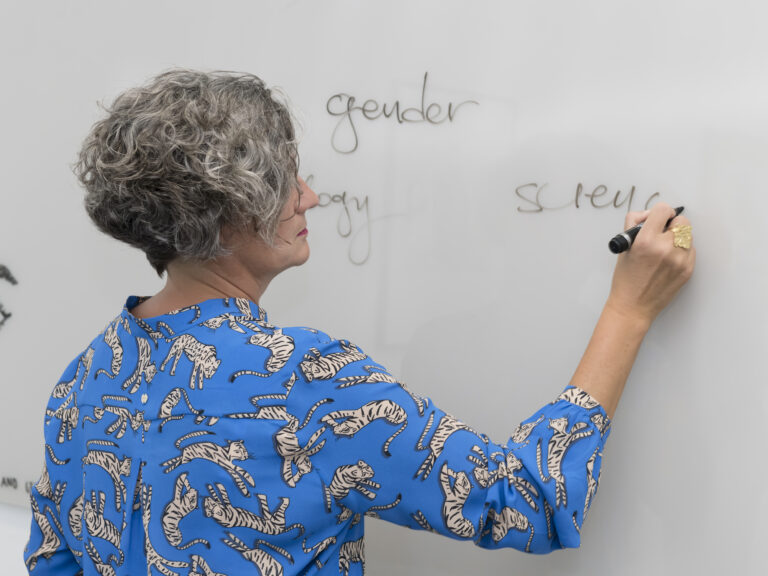 gender
ogy scienc
AND